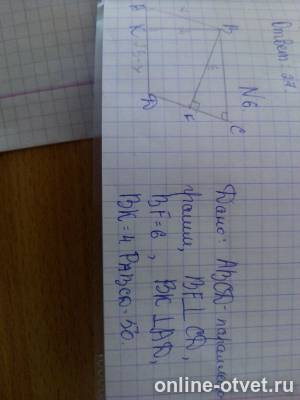 Ответ: 27
N6.
A
B
K
D
F
C
6
Дано: ABCD - параллело-
грамм, BF⊥CD,
BF=6, BK⊥AD,
BK=4 PABCD=50.
online-otvet.ru